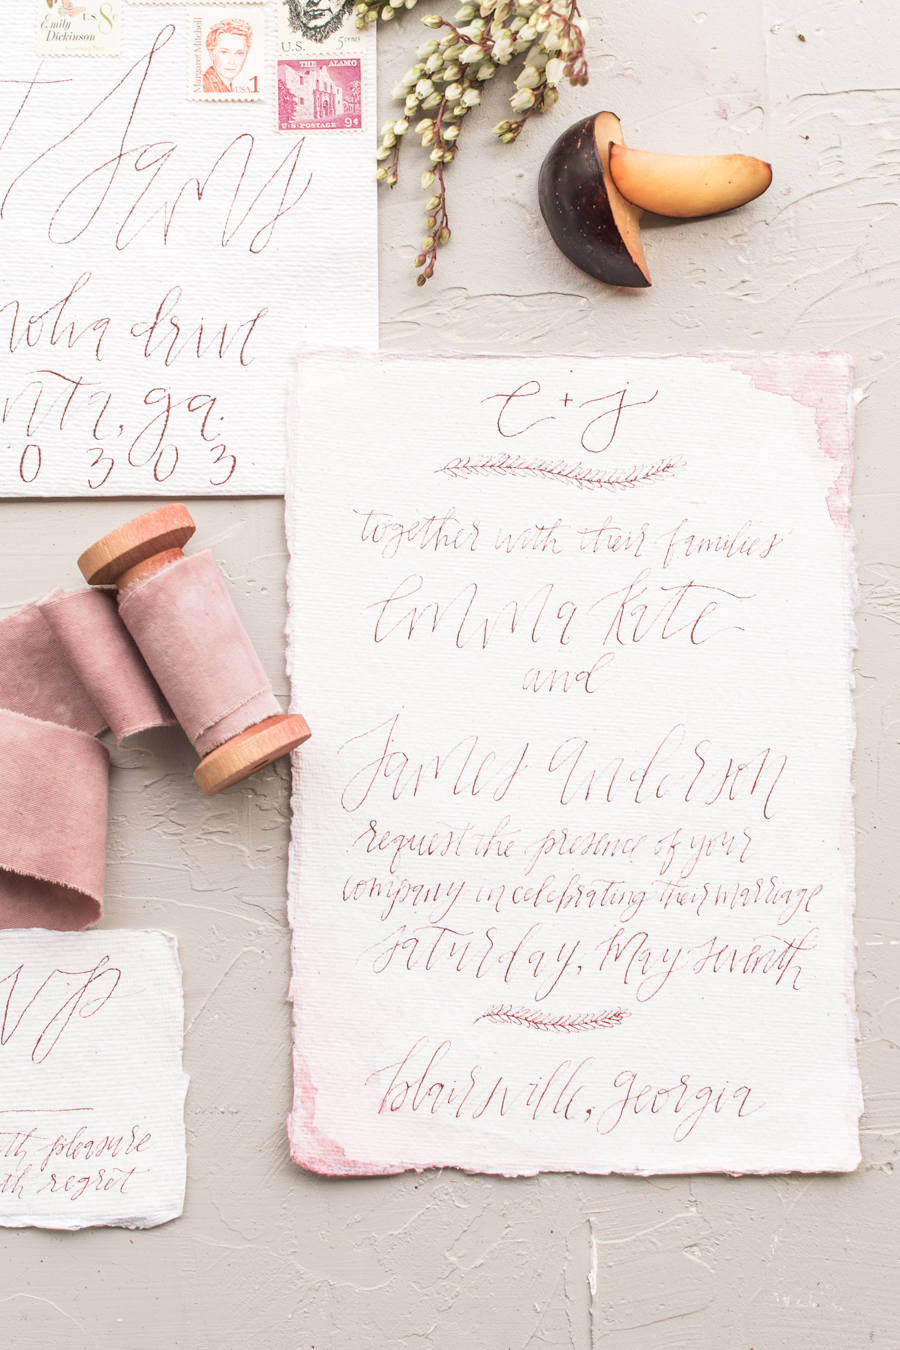 Emily
Dickinson
U.S. 8c
Margaret Mitchell
USA 1
U.S. 5 cents
THE ALAMO
U·S·POSTAGE 9¢
Sams
drive
ga.
0303
e + j
together with their families
emma kate
and
james anderson
request the presence of your
company in celebrating their marriage
saturday, may seventh
blairsville, georgia
vp
pleasure
regret